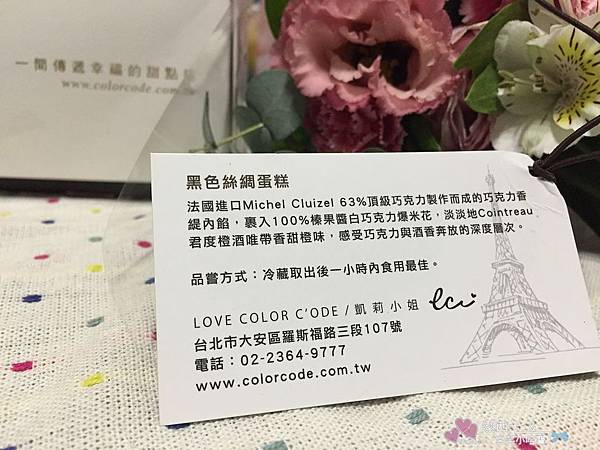 一間傳遞幸福的甜點
www.colorcode.com
黑色絲綢蛋糕
法國進口Michel Cluizel 63%頂級巧克力製作而成的巧克力香
緹內餡，裹入100%榛果醬白巧克力爆米花，淡淡地Cointreau
君度橙酒唯帶香甜橙味，感受巧克力與酒香奔放的深度層次。
品嘗方式：冷藏取出後一小時內食用最佳。
LOVE COLOR C'ODE / 凱莉小姐
台北市大安區羅斯福路三段107號
電話：02-2364-9777
www.colorcode.com.tw